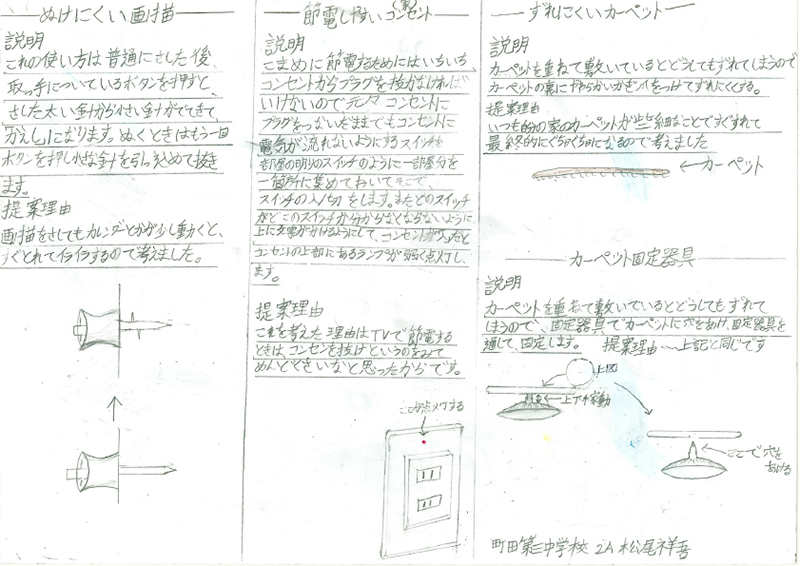 ぬけにくい画描
説明
これの使い方は普通にさした後、
取っ手についているボタンを押すと、
さした太い針から小さい針がでてきて、
「かえし」になります。ぬくときはもう一回
ボタンを押し小さな針を引っ込めて抜き
ます。
提案理由
画描をさしてもカレンダーとかが少し動くと、
すぐとれてイライラするので考えました。
節電しやすいコンセント
(家)
説明
こまめに節電するためにはいちいち、
コンセントからプラグを抜かなければ
いけないので コンセントに
プラグをつないだままでもコンセントに
電気が流れないようにするスイッチを
部屋の明りのスイッチのように一部屋分を
一箇所に集めておいてそこで、
スイッチの入/切をします。またどのスイッチ
がどこのスイッチか分からなくならないように
上に 書けるようにして、コンセントが だと
コンセントの上部にあるランプが 点灯し
ます。
提案理由
これを考えた理由はTVで節電する
ときは、コンセンを抜けというのをみて
めんどくさいなと思ったからです。
ここが点灯する
ずれにくいカーペット
説明
カーペットを重ねて敷いているとどうしてもずれてしまうので
カーペットの裏にやわらかいかぎ をつけてずれにくくする。
提案理由
いつも自分の家のカーペットが些細なことですぐずれて
最終的にぐちゃぐちゃになるので考えました
カーペット
カーペット固定器具
説明
カーペットを重ねて敷いているとどうしてもずれて
しまうので、固定器具でカーペットに穴をあけ、固定器具を
通して、固定します。 提案理由…上記と同じです
上図
上下稼動
ここで穴を
あける
町田第三中学校 2A 松尾祥吾